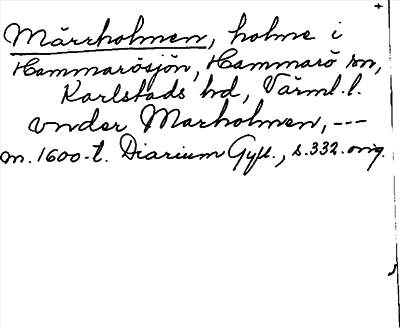 Märrholmen, holme i
Hammarösjön, Hammarö sn,
Karlstads hd, Värml.l.
vnder Marholmen, ---
m. 1600-t. Diarium Gyll., s.332. orig.